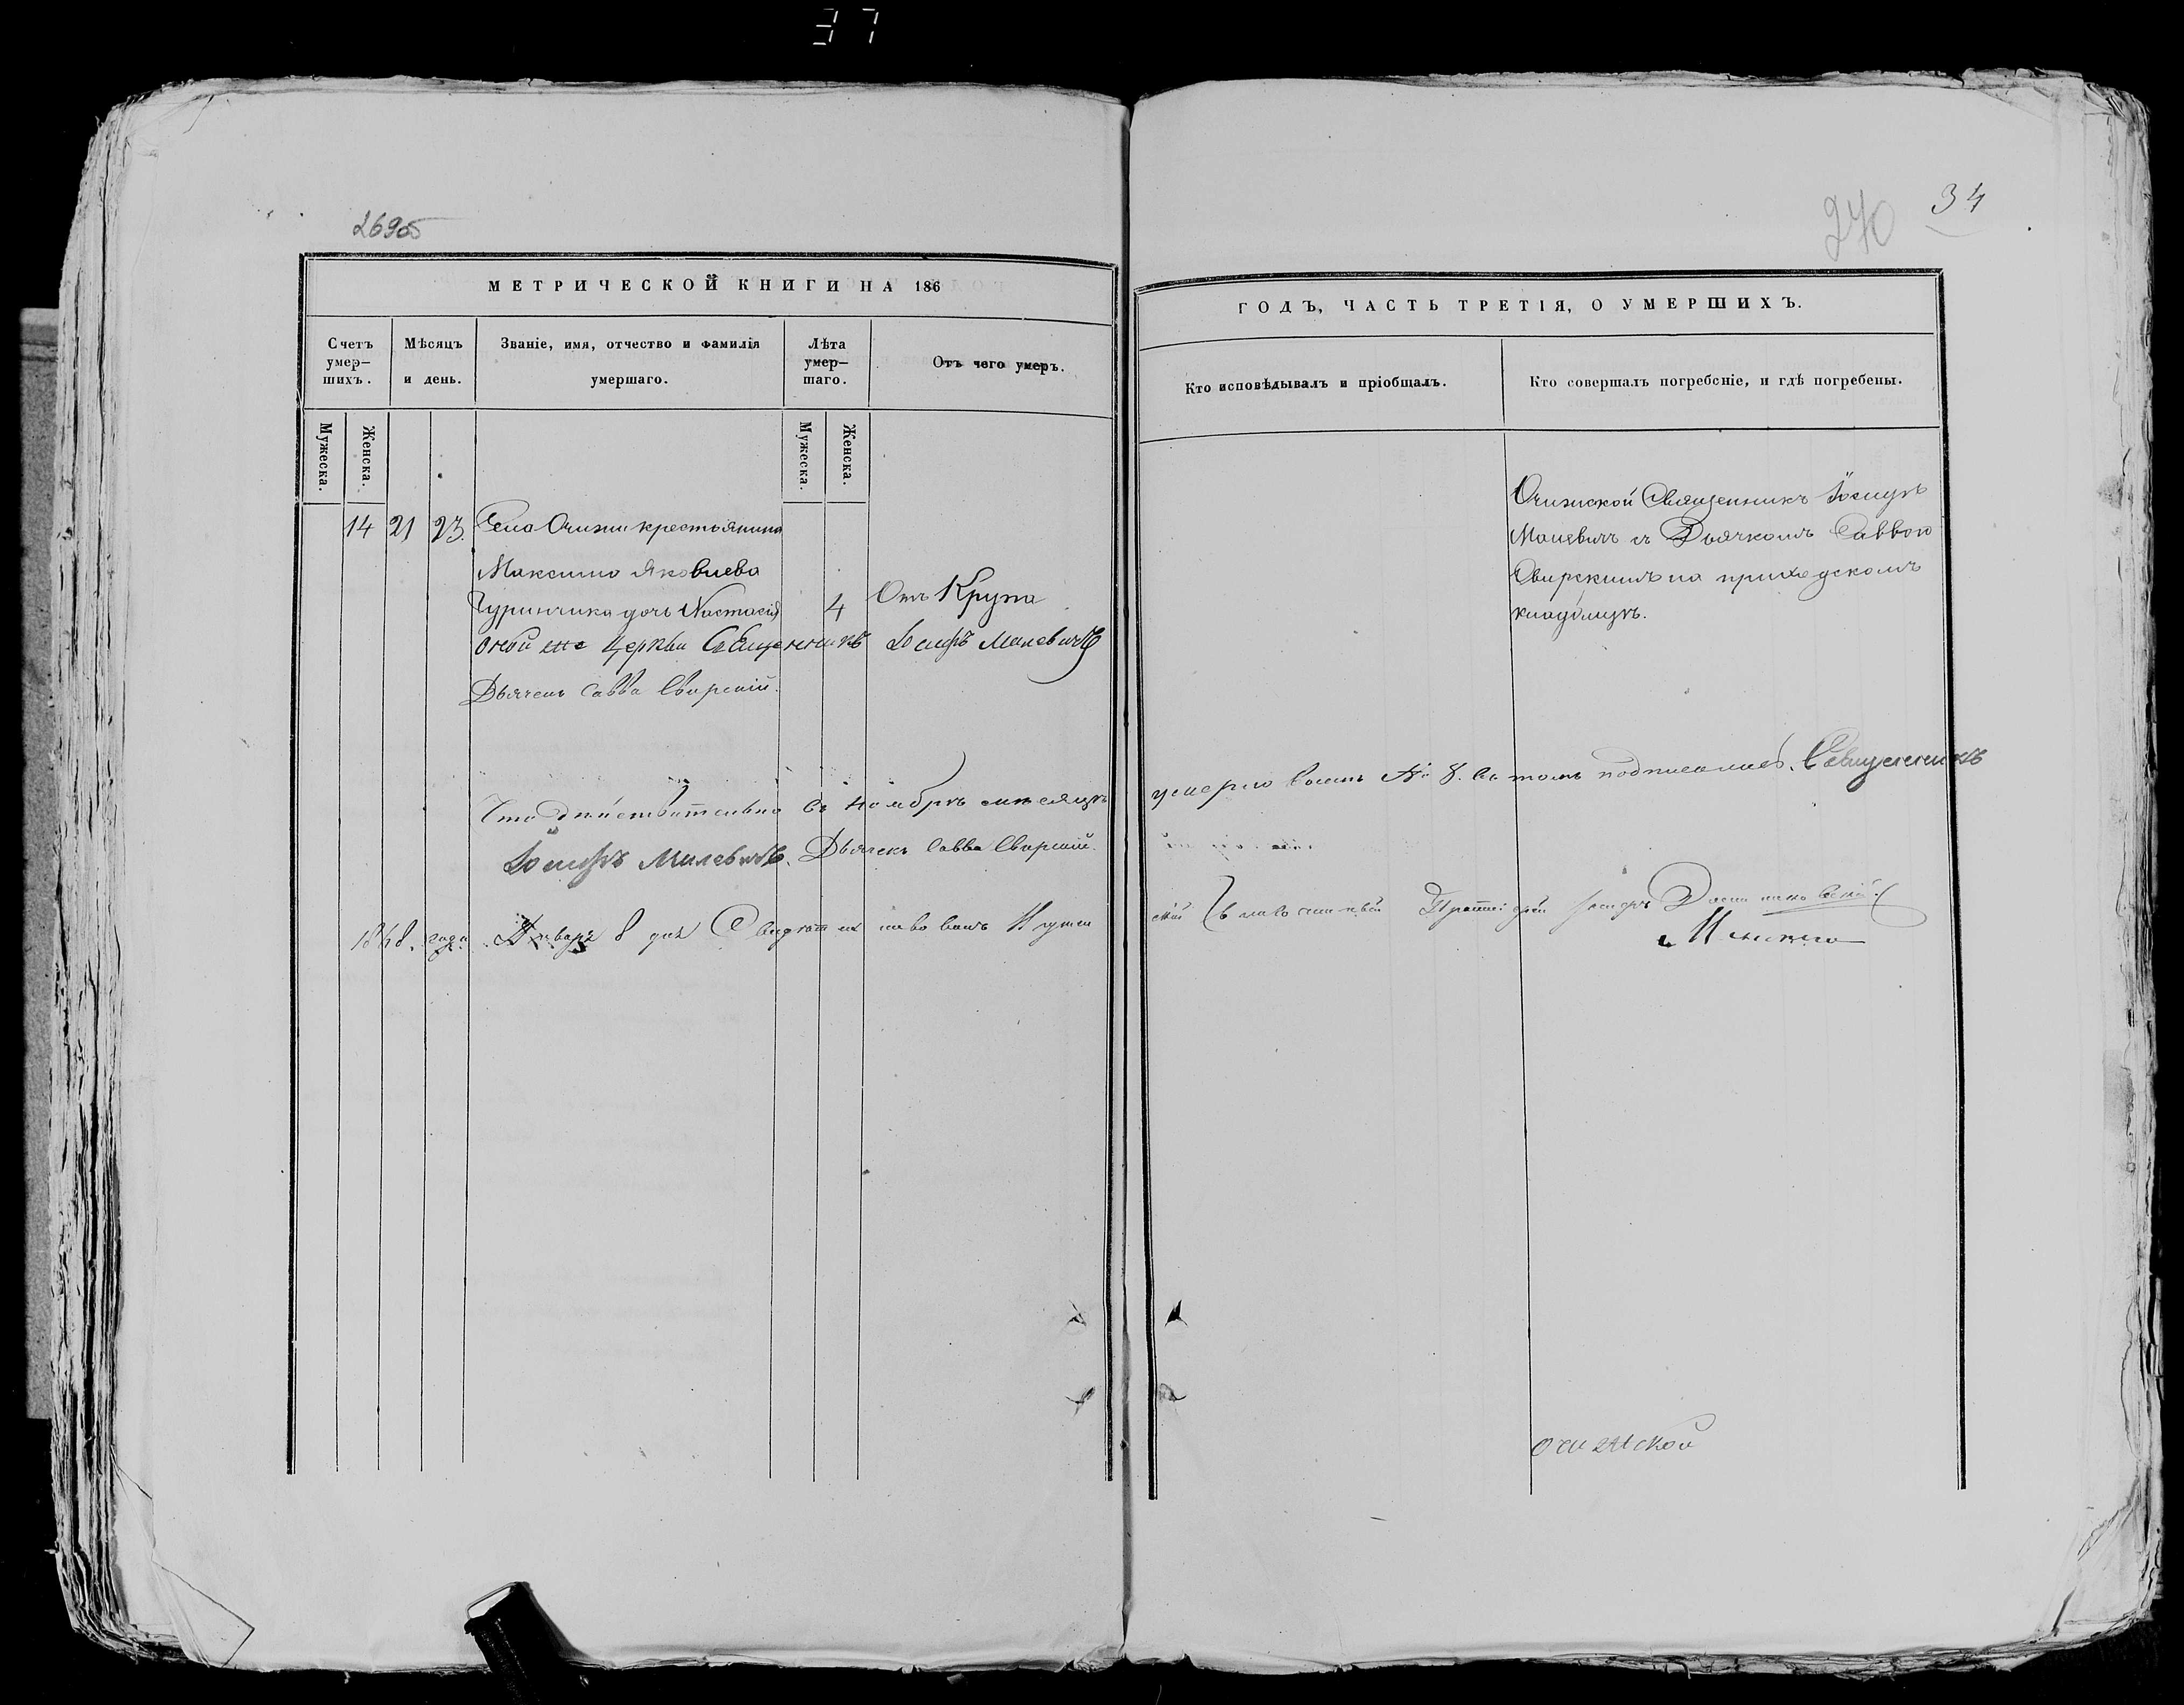 37
269об
МЕТРИЧЕСКОЙ КНИГИ НА 186
Счетъ умер-
шихъ.
Мѣсяцъ
и день.
Званіе, имя, отчество и фамилія
умершаго.
Лѣта
умер-
шаго.
Отъ чего умеръ.
Мужеска.
Женска.
Мужеска.
Женска.
14 21 23. Села Очижи крестьянина
Максима Яковлева
Чуринчика дочь Настасія 4 Отъ Крупа
Оной же Церкви Священникъ Іосифъ Малевичъ
Дьячекъ Савва Свирскій.
Что дѣйствительно въ Ноябрѣ мѣсяцѣ
Іосифъ Малевичъ. Дьячекъ Савва Свирскій.
1868. года Января 8 дня Свидѣтельствовалъ
270 34
ГОДЪ, ЧАСТЬ ТРЕТІЯ, О УМЕРШИХЪ.
Кто исповѣдывалъ и пріобщалъ.
Кто совершалъ погребеніе, и гдѣ погребены.
Очижской Священникъ Іосифъ
Малевичъ съ Дьячкомъ Саввою
Свирскимъ на приходскомъ
кладбищѣ.
умерло восемь № 8. Въ томъ подписались. Священникъ
Очижской